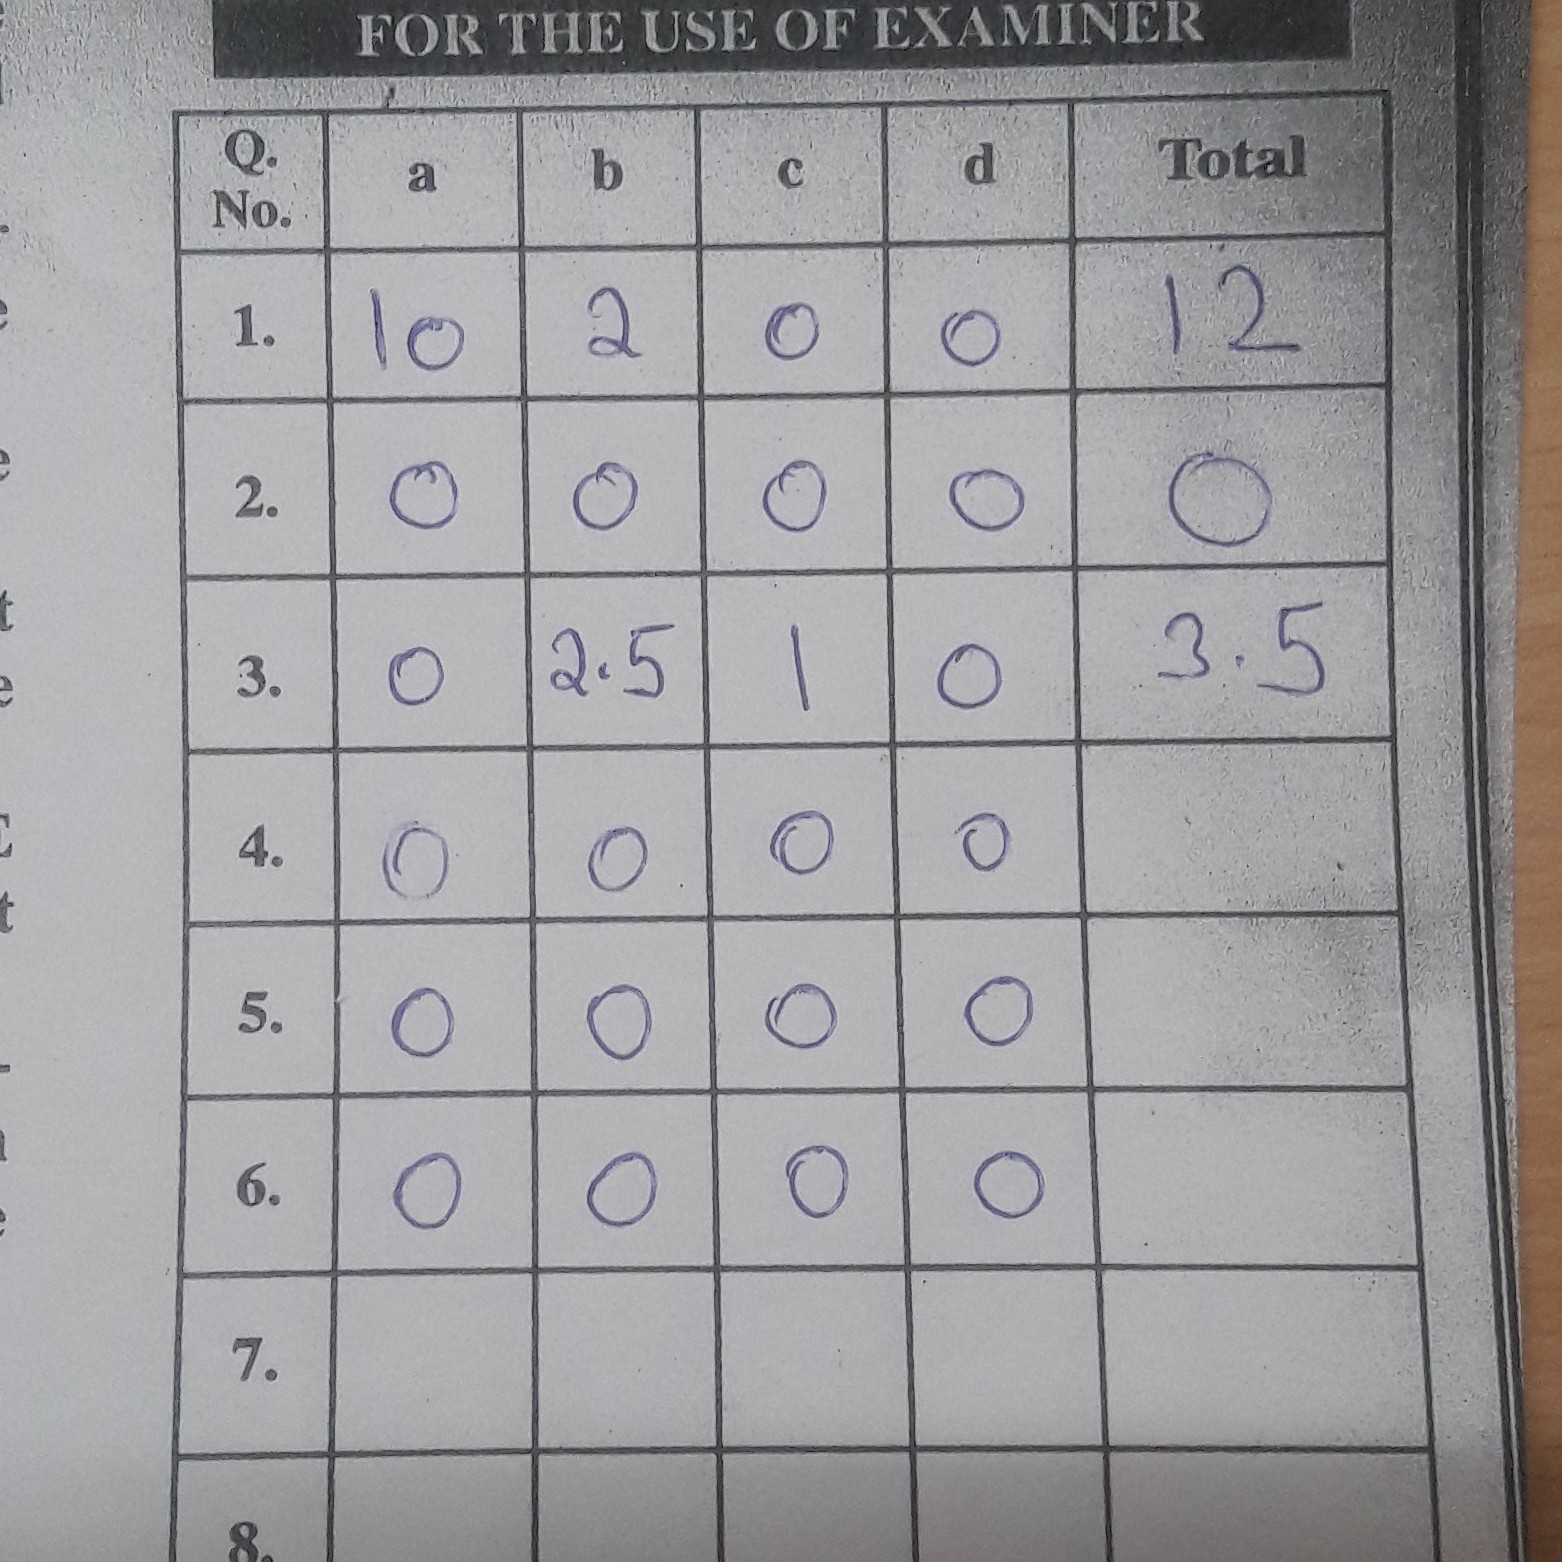 FOR THE USE OF EXAMINER
Q. No. a b c d Total
1. 10 2 0 0 12
2. 0 0 0 0 0
3. 0 2.5 1 0 3.5
4. 0 0 0 0
5. 0 0 0 0
6. 0 0 0 0
7.
8.